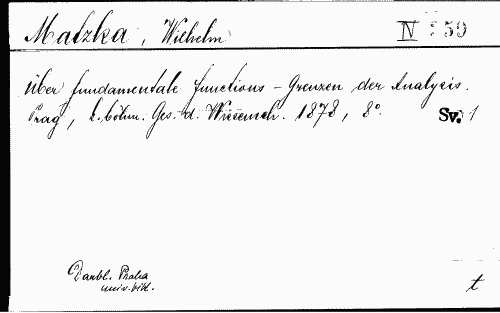 Matzka, Wilhelm
IV 259
Über fundamentale Functions-Grenzen der Analysis.
Prag, k. böhm. Ges. d. Wissensch. 1878, 8°. Sv. 1
Doubl. Praha
univ. bibl.
t